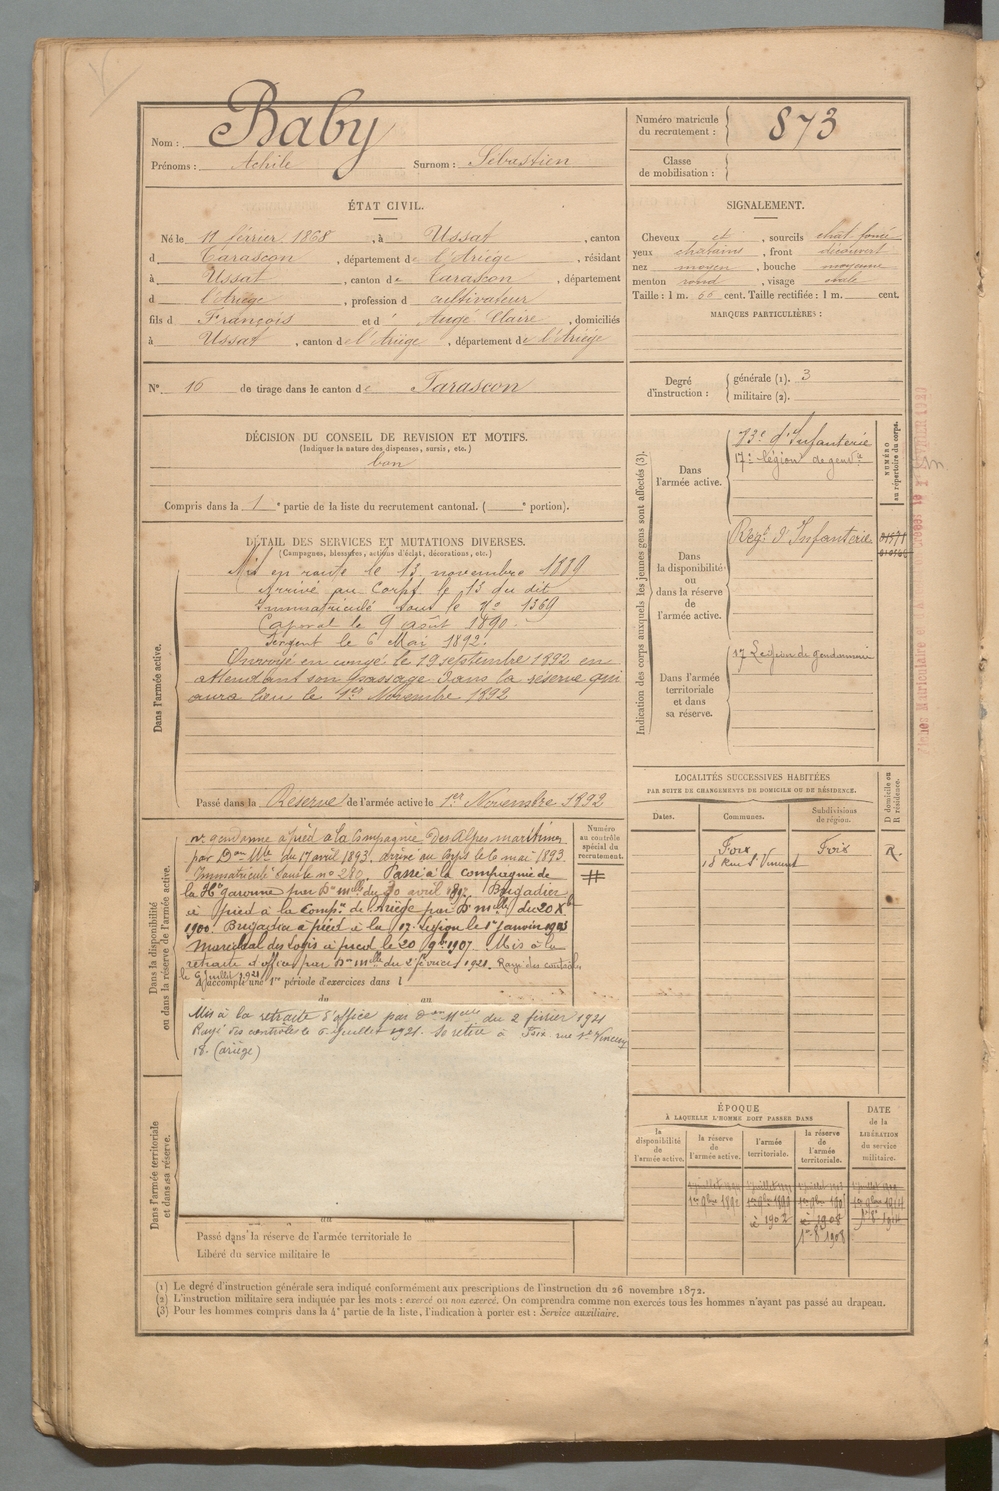 Nom : Baby
Prénoms : Achile Surnom : Sébastien
Numéro matricule du recrutement : 873
Classe de mobilisation :
ÉTAT CIVIL.
Né le 11 février 1868, à Ussat, canton
d Tarascon, département de l'Ariège, résidant
à Ussat, canton de Tarascon, département
d l'Ariège, profession d cultivateur
fils d François et d' Augé Claire, domiciliés
à Ussat, canton de l'Ariège, département de l'Ariège
N° 16 de tirage dans le canton de Tarascon
SIGNALEMENT.
Cheveux et, sourcils chat. foncé
yeux chatains, front découvert
nez moyen, bouche moyenne
menton rond, visage ovale
Taille : 1 m. 66 cent. Taille rectifiée : 1 m. cent.
MARQUES PARTICULIÈRES :
Degré d'instruction : générale (1). 3
militaire (2).
DÉCISION DU CONSEIL DE REVISION ET MOTIFS.
(Indiquer la nature des dispenses, sursis, etc.)
bon
Compris dans la 1e partie de la liste du recrutement cantonal. ( e portion).
DÉTAIL DES SERVICES ET MUTATIONS DIVERSES.
(Campagnes, blessures, actions d'éclat, décorations, etc.)
Dans l'armée active.
Mis en route le 13 novembre 1889
Arrivé au Corps le 13 du dit
Immatriculé sous le N° 1369
Caporal le 9 août 1890.
Sergent le 6 Mai 1892.
Envoyé en congé le 19 septembre 1892 en
attendant son passage dans la réserve qui
aura lieu le 1er Novembre 1892
Passé dans la Réserve de l'armée active le 1er Novembre 1892
Dans la disponibilité ou dans la réserve de l'armée active.
gendarme à pied à la Compagnie des Alpes maritimes
par Don Mlle du 17 avril 1893. arrivé au corps le 6 mai 1893.
Immatriculé sous le n° 280. Passé à la compagnie de
la Hte garonne par Don mlle du 30 avril Brigadier
à pied à la Compie de l'Ariège par Don mlle du 20 Xbre
1900. Brigadier à pied à la 17e Légion le 1er janvier
Maréchal des Logis à pied le 20 9bre 1907 Mis à la
retraite d'office par Don mlle du 2 février 1921. Rayé des contrôles
le 6 juillet 1921
A accompli une 1re période d'exercices dans l
du au
Mis à la retraite d'office par don Mlle du 2 février 1921
Rayé des contrôles le 6 juillet 1921. Se retire à Foix rue St Vincent
18. (ariège)
Numéro au contrôle spécial du recrutement.
Dans l'armée territoriale et dans sa réserve.
Passé dans la réserve de l'armée territoriale le
Libéré du service militaire le
Indication des corps auxquels les jeunes gens sont affectés (3).
NUMÉRO au répertoire du corps.
Dans l'armée active.
73e d'Infanterie
17e légion de gendie
Dans la disponibilité ou dans la réserve de l'armée active.
Regt d'Infanterie
Dans l'armée territoriale et dans sa réserve.
17 Légion de gendarmerie
LOCALITÉS SUCCESSIVES HABITÉES
PAR SUITE DE CHANGEMENTS DE DOMICILE OU DE RÉSIDENCE.
Dates. Communes. Subdivisions de région. D domicile ou R résidence.
Foix Foix R.
18 Rue St Vincent
ÉPOQUE
À LAQUELLE L'HOMME DOIT PASSER DANS
la disponibilité de l'armée active.
la réserve de l'armée active.
l'armée territoriale.
la réserve de l'armée territoriale.
DATE de la LIBÉRATION du service militaire.
à 1902 à 1908
1er 8bre 1908
(1) Le degré d'instruction générale sera indiqué conformément aux prescriptions de l'instruction du 26 novembre 1872.
(2) L'instruction militaire sera indiquée par les mots : exercé ou non exercé. On comprendra comme non exercés tous les hommes n'ayant pas passé au drapeau.
(3) Pour les hommes compris dans la 4e partie de la liste, l'indication à porter est : Service auxiliaire.